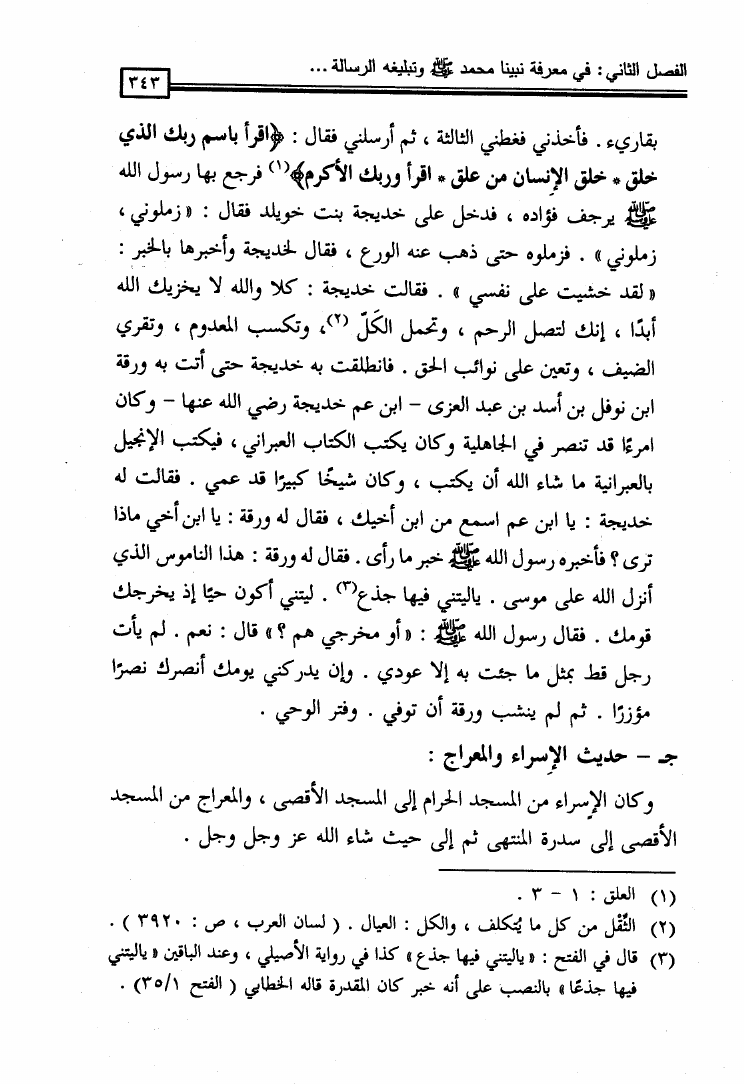 الفصل الثاني : في معرفة نبينا محمد ﷺ وتبليغه الرسالة ...
٣٤٣
بقاريء . فأخذني فغطني الثالثة ، ثم أرسلني فقال : ﴿اقرأ باسم ربك الذي
خلق * خلق الإنسان من علق * اقرأ وربك الأكرم﴾(١) فرجع بها رسول الله
ﷺ يرجف فؤاده ، فدخل على خديجة بنت خويلد فقال : «زملوني ،
زملوني» . فزملوه حتى ذهب عنه الورع ، فقال لخديجة وأخبرها بالخبر :
«لقد خشيت على نفسي» . فقالت خديجة : كلا والله لا يخزيك الله
أبدًا ، إنك لتصل الرحم ، وتحمل الكَلّ (٢)، وتكسب المعدوم ، وتقري
الضيف ، وتعين على نوائب الحق . فانطلقت به خديجة حتى أتت به ورقة
ابن نوفل بن أسد بن عبد العزى - ابن عم خديجة رضي الله عنها - وكان
امرءًا قد تنصر في الجاهلية وكان يكتب الكتاب العبراني ، فيكتب الإنجيل
بالعبرانية ما شاء الله أن يكتب ، وكان شيخًا كبيرًا قد عمي . فقالت له
خديجة : يا ابن عم اسمع من ابن أخيك ، فقال له ورقة : يا ابن أخي ماذا
ترى ؟ فأخبره رسول الله ﷺ خبر ما رأى . فقال له ورقة : هذا الناموس الذي
أنزل الله على موسى . ياليتني فيها جذع(٣) . ليتني أكون حيًا إذ يخرجك
قومك . فقال رسول الله ﷺ : «أو مخرجي هم ؟» قال : نعم . لم يأت
رجل قط بمثل ما جئت به إلا عودي . وإن يدركني يومك أنصرك نصرًا
مؤزرًا . ثم لم ينشب ورقة أن توفي . وفتر الوحي .
جـ - حديث الإسراء والمعراج :
وكان الإسراء من المسجد الحرام إلى المسجد الأقصى ، والمعراج من المسجد
الأقصى إلى سدرة المنتهى ثم إلى حيث شاء الله عز وجل وجل .
(١) العلق : ١ - ٣ .
(٢) الثِّقْل من كل ما يُتكلف ، والكل : العيال . ( لسان العرب ، ص : ٣٩٢٠ ) .
(٣) قال في الفتح : «ياليتني فيها جذع» كذا في رواية الأصيلي ، وعند الباقين «ياليتني
فيها جذعًا» بالنصب على أنه خبر كان المقدرة قاله الخطابي ( الفتح ٣٥/١) .